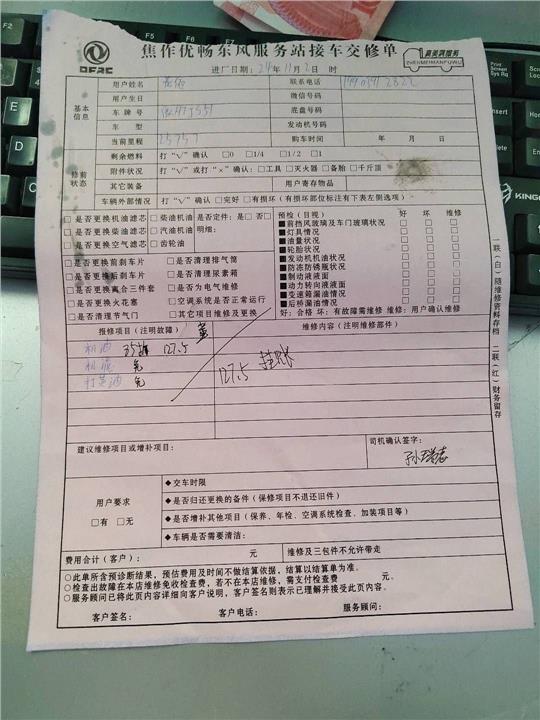 DFAC
焦作优畅东风服务站接车交修单
真美满服务
ZHENMEIMANFUWU
进厂日期：24年11月2日 时
基本信息
用户姓名 联系电话
用户生日 微信号码
车牌号 底盘号码
车型 发动机号码
当前里程 25757 购车时间 年 月 日
修前状态
剩余燃料 打“√”确认 □0 □1/4 □1/2 □1
附件状况 打“√”或打“×”确认：□工具 □灭火器 □备胎 □千斤顶
其它装备 用户寄存物品
车辆外部情况 打“√”确认 □完好 □有损坏（有损坏部位标注有下表左侧选项）
□是否更换机油滤芯 □柴油机油 是否定件：是□ 否□
□是否更换柴油滤芯 □汽油机油 明细：
□是否更换空气滤芯 □齿轮油
□是否更换前刹车片 □是否清理排气筒
□是否更换后刹车片 □是否清理尿素箱
□是否更换离合三件套 □是否为电气维修
□是否更换火花塞 □空调系统是否正常运行
□是否清理节气门 □其它项目维修及更换
预检（目视） 好 坏 维修
■前挡风玻璃及车门玻璃状况 □ □ □
■灯具情况 □ □ □
■油量状况 □ □ □
■轮胎状况 □ □ □
■发动机机油状况 □ □ □
■防冻防锈瓶状况 □ □ □
■制动液液面 □ □ □
■动力转向液液面 □ □ □
■变速箱漏油情况 □ □ □
■后桥漏油情况 □ □ □
好：合格 坏：有故障需维修 维修：用户确认维修
报修项目（注明故障） 维修内容（注明维修部件）
机油 127.5
机滤 免
打黄油 免
127.5 挂账
建议维修项目或增补项目：
司机确认签字：
用户要求
□有 □无
◆交车时限
◆是否归还更换的备件（保修项目不退还旧件）
◆是否增补其他项目（保养、年检、空调系统检查、加装项目等）
◆车辆是否需要清洁：
费用合计（客户）： 元 维修及三包件不允许带走
○此单所含预诊断结果，预估费用及时间不做结算依据，结算以结算单为准。
○检查出故障在本店维修免收检查费，若不在本店维修，需支付检查费 元。
○服务顾问已将此页内容详细向客户说明，客户签名则表示已理解并接受此页内容。
客户签名： 客户电话： 服务顾问：
一联（白）随维修资料存档
二联（红）财务留存